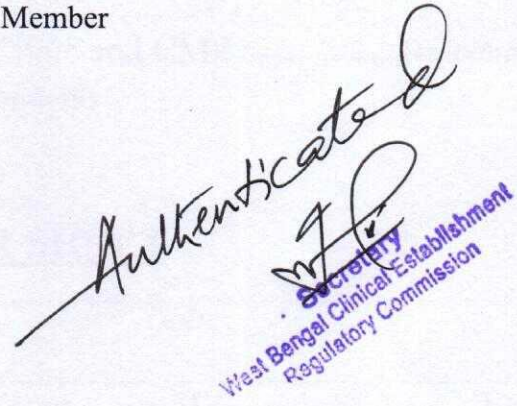 Member
Authenticated
Secretary
West Bengal Clinical Establishment
Regulatory Commission